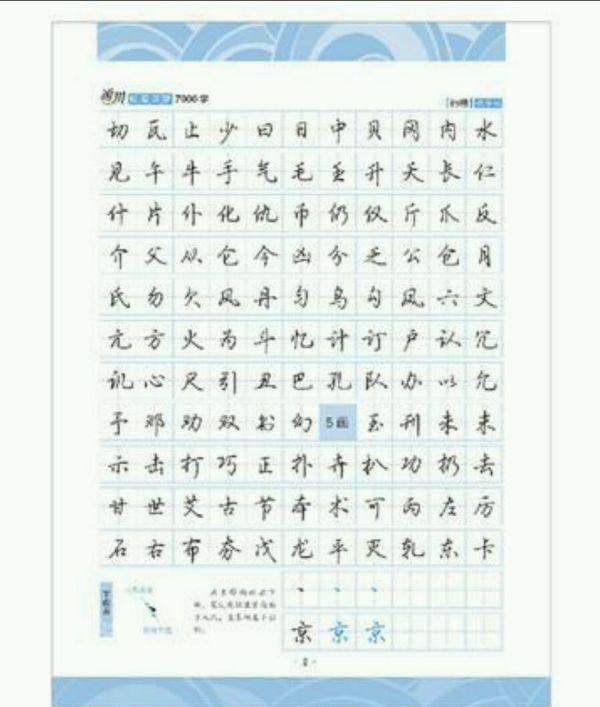 7000字
切 瓦 止 少 曰 日 中 贝 冈 内 水
见 午 牛 手 气 毛 壬 升 夭 长 仁
什 片 仆 化 仇 币 仍 仅 斤 爪 反
介 父 从 仑 今 凶 分 乏 公 仓 月
氏 勿 欠 风 丹 匀 乌 勾 凤 六 文
亢 方 火 为 斗 忆 计 订 户 认 冗
讥 心 尺 引 丑 巴 孔 队 办 以 允
予 邓 劝 双 书 幻 5画 玉 刊 未 末
示 击 打 巧 正 扑 卉 扒 功 扔 去
甘 世 艾 古 节 本 术 可 丙 左 厉
石 右 布 夯 戊 龙 平 灭 轧 东 卡
下长点
京 京 京
·2·